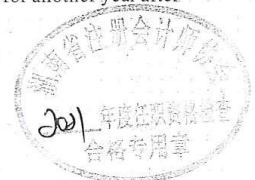 for another year after
湖南省注册会计师协会
2021 年度任职资格检查
合格专用章